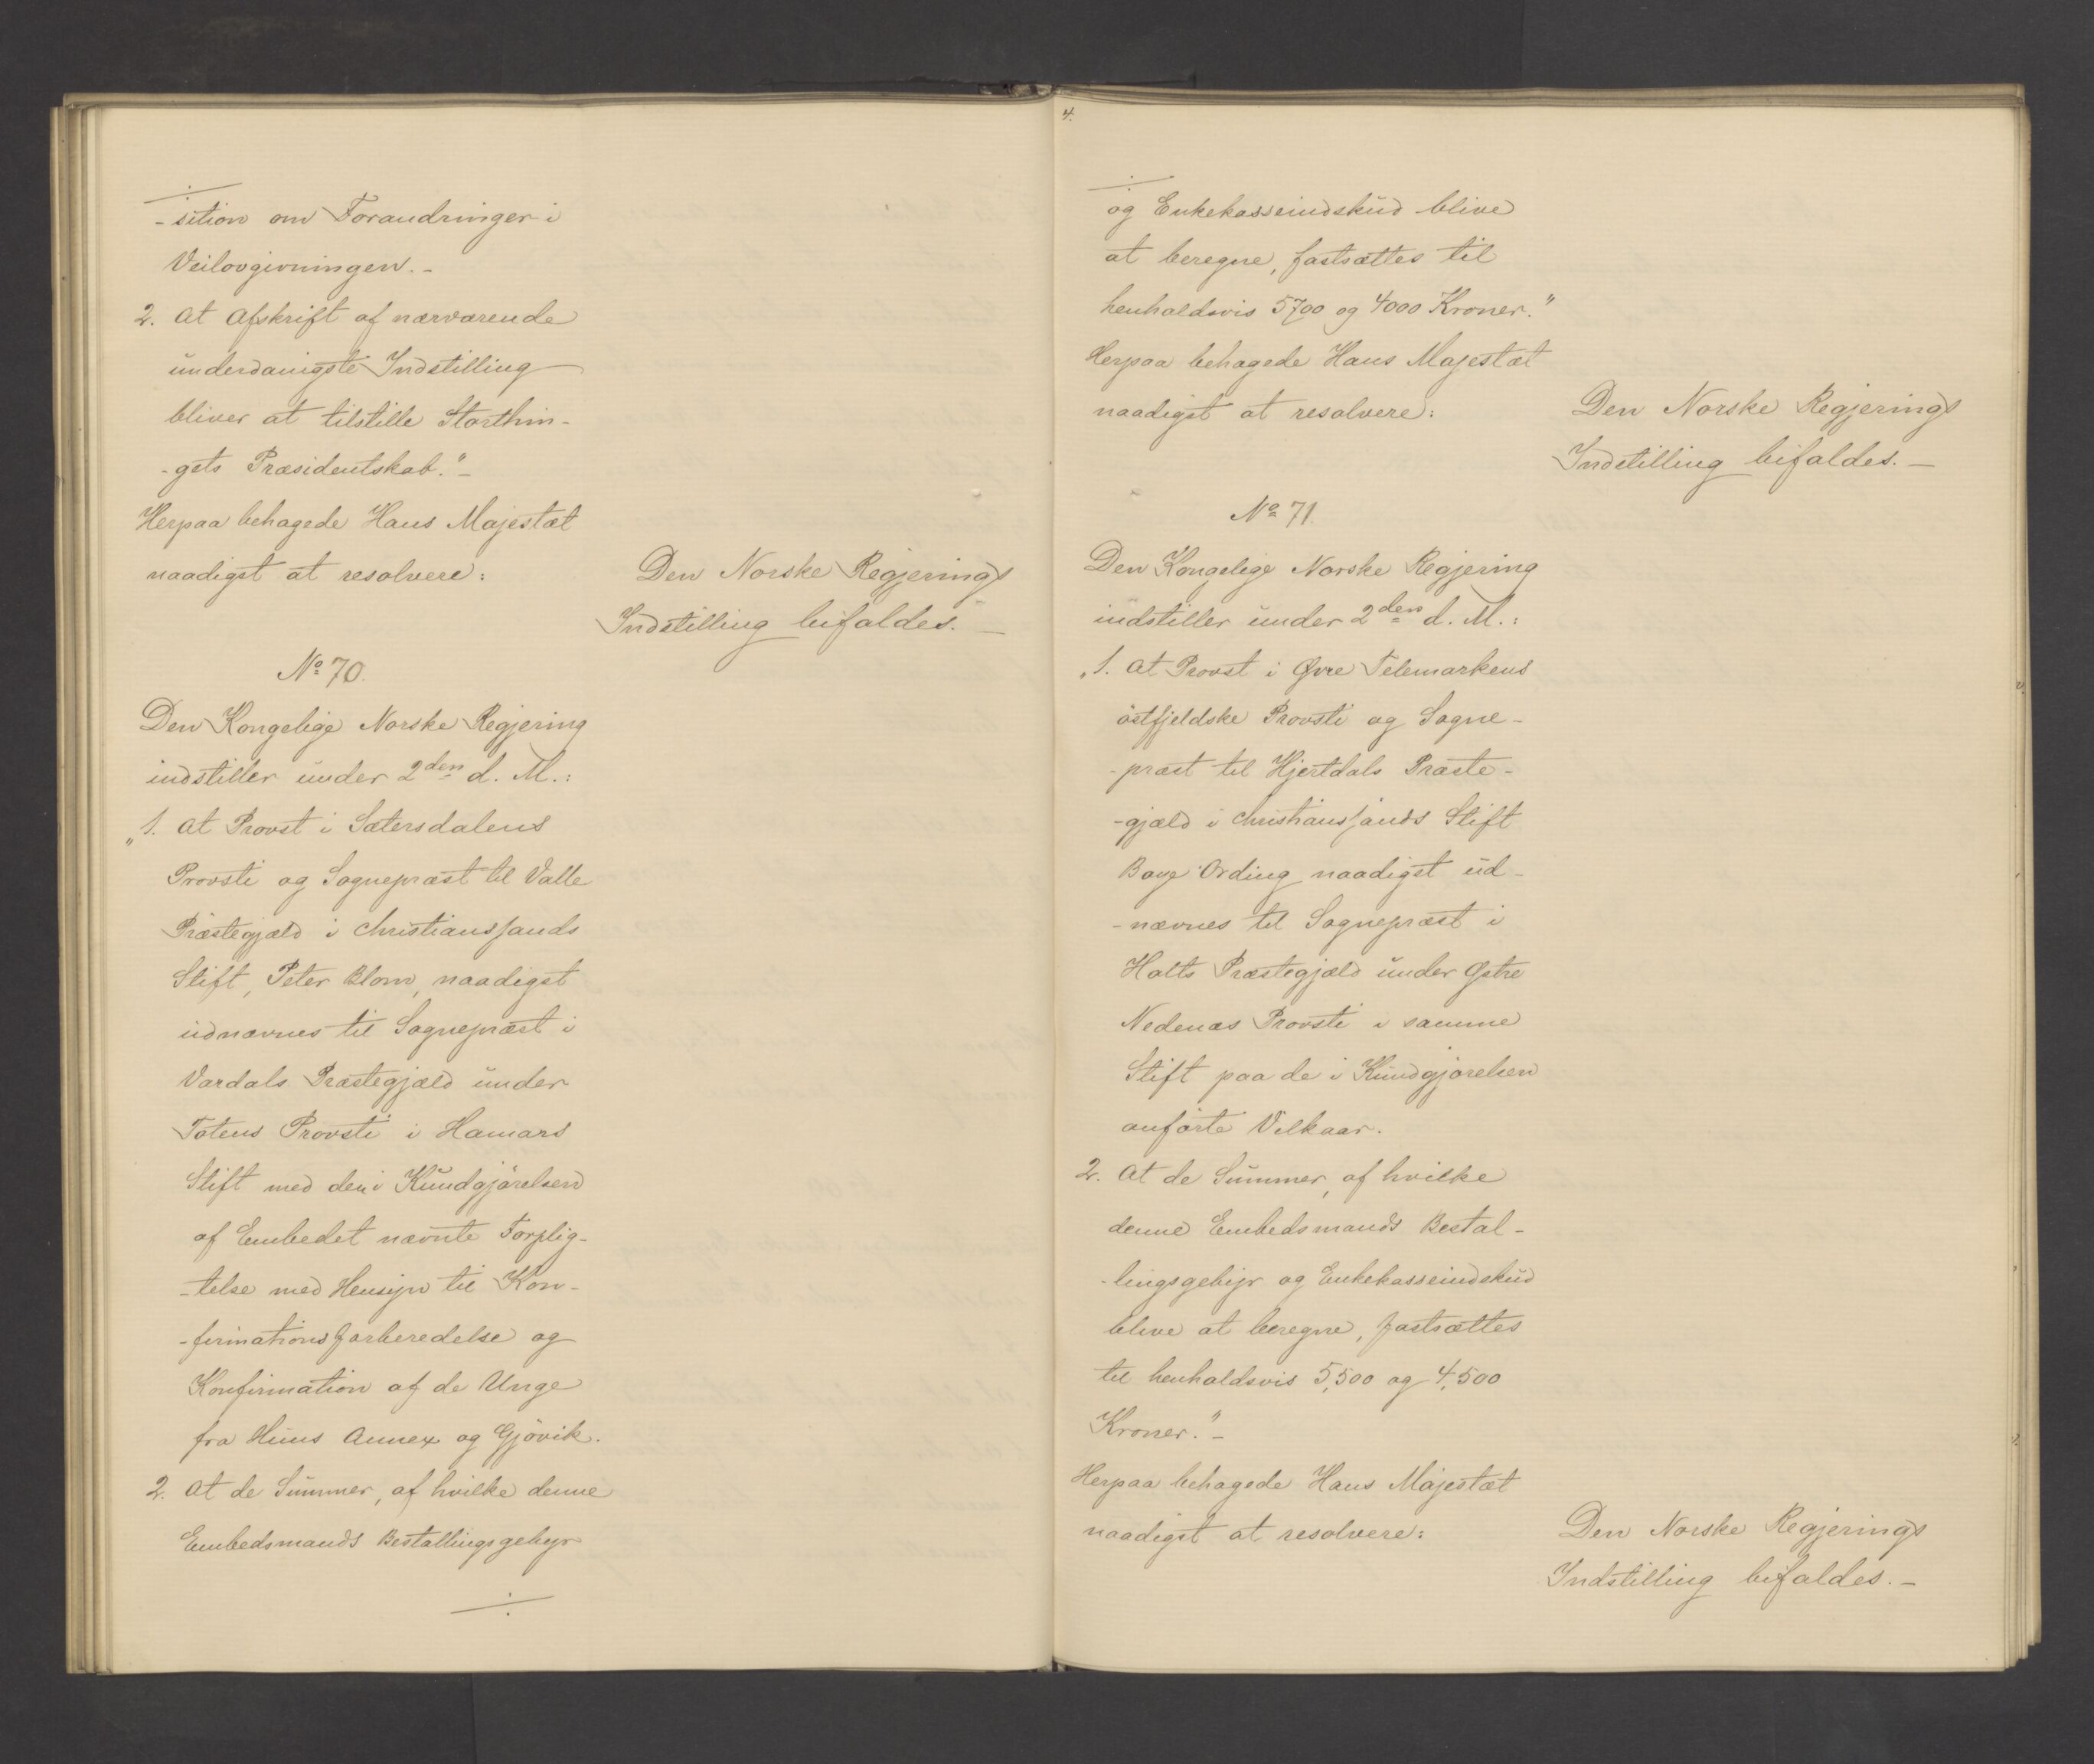 -sition om Forandringer i
Veilovgivningen.-
2. At Afskrift af nærværende
underdanigste Indstilling
bliver at tilstille Storthin-
-gets Præsidentskab."-
Herpaa behagede Hans Majestæt
naadigst at resolvere:
Den Norske Regjerings
Indstilling bifaldes.-
No 70.
Den Kongelige Norske Regjering
indstiller under 2den d. M.:
"1. At Provst i Sætersdalens
Provsti og Sognepræst til Valle
Præstegjæld i Christianssands
Stift, Peter Blom, naadigst
udnævnes til Sognepræst i
Vardals Præstegjæld under
Totens Provsti i Hamars
Stift med den i Kundgjörelsen
af Embedet nævnte Forplig-
-telse med Hensyn til Kon-
-firmationsforberedelse og
Konfirmation af de Unge
fra Huns Annex og Gjövik.
2. At de Summer, af hvilke denne
Embedsmands Bestallingsgebyr
4.
og Enkekasseindskud blive
at beregne, fastsættes til
henholdsvis 5700 og 4000 Kroner."
Herpaa behagede Hans Majestæt
naadigst at resolvere:
Den Norske Regjerings
Indstilling bifaldes.-
No 71.
Den Kongelige Norske Regjering
indstiller under 2den d. M.:
"1. At Provst i Øvre Telemarkens
östfjeldske Provsti og Sogne-
-præst til Hjertdals Præste-
-gjæld i Christianssands Stift
Boye Ording naadigst ud-
-nævnes til Sognepræst i
Holts Præstegjæld under Østre
Nedenæs Provsti i samme
Stift paa de i Kundgjörelsen
anförte Vilkaar.
2. At de Summer, af hvilke
denne Embedsmands Bestal-
-lingsgebyr og Enkekasseindskud
blive at beregne, fastsættes
til henholdsvis 5,500 og 4,500
Kroner."-
Herpaa behagede Hans Majestæt
naadigst at resolvere:
Den Norske Regjerings
Indstilling bifaldes.-